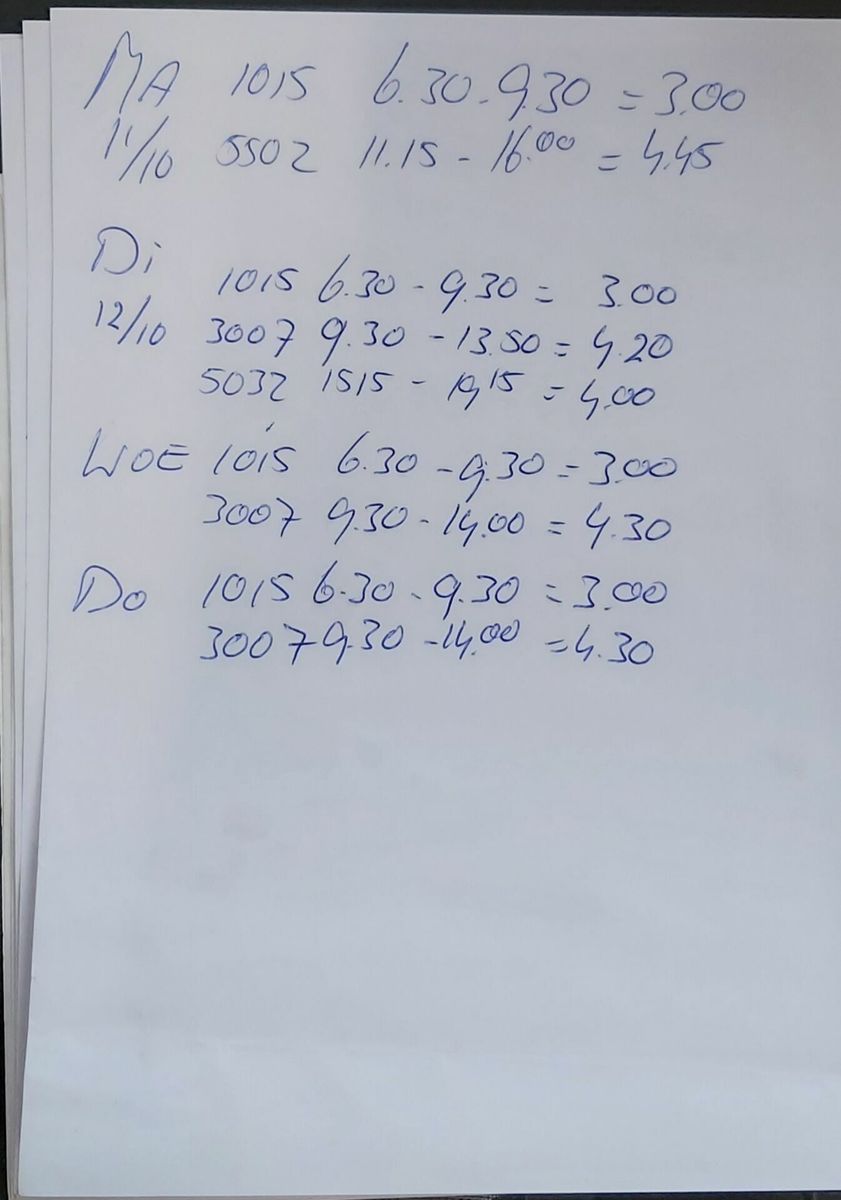 MA 1015 6.30 - 9.30 = 3.00
11/10 5502 11.15 - 16.00 = 4.45
Di
1015 6.30 - 9.30 = 3.00
12/10 3007 9.30 - 13.50 = 4.20
5032 1515 - 19,15 = 4.00
WOE 1015 6.30 - 9.30 = 3.00
3007 9.30 - 14.00 = 4.30
Do 1015 6.30 - 9.30 = 3.00
3007 9.30 - 14.00 = 4.30